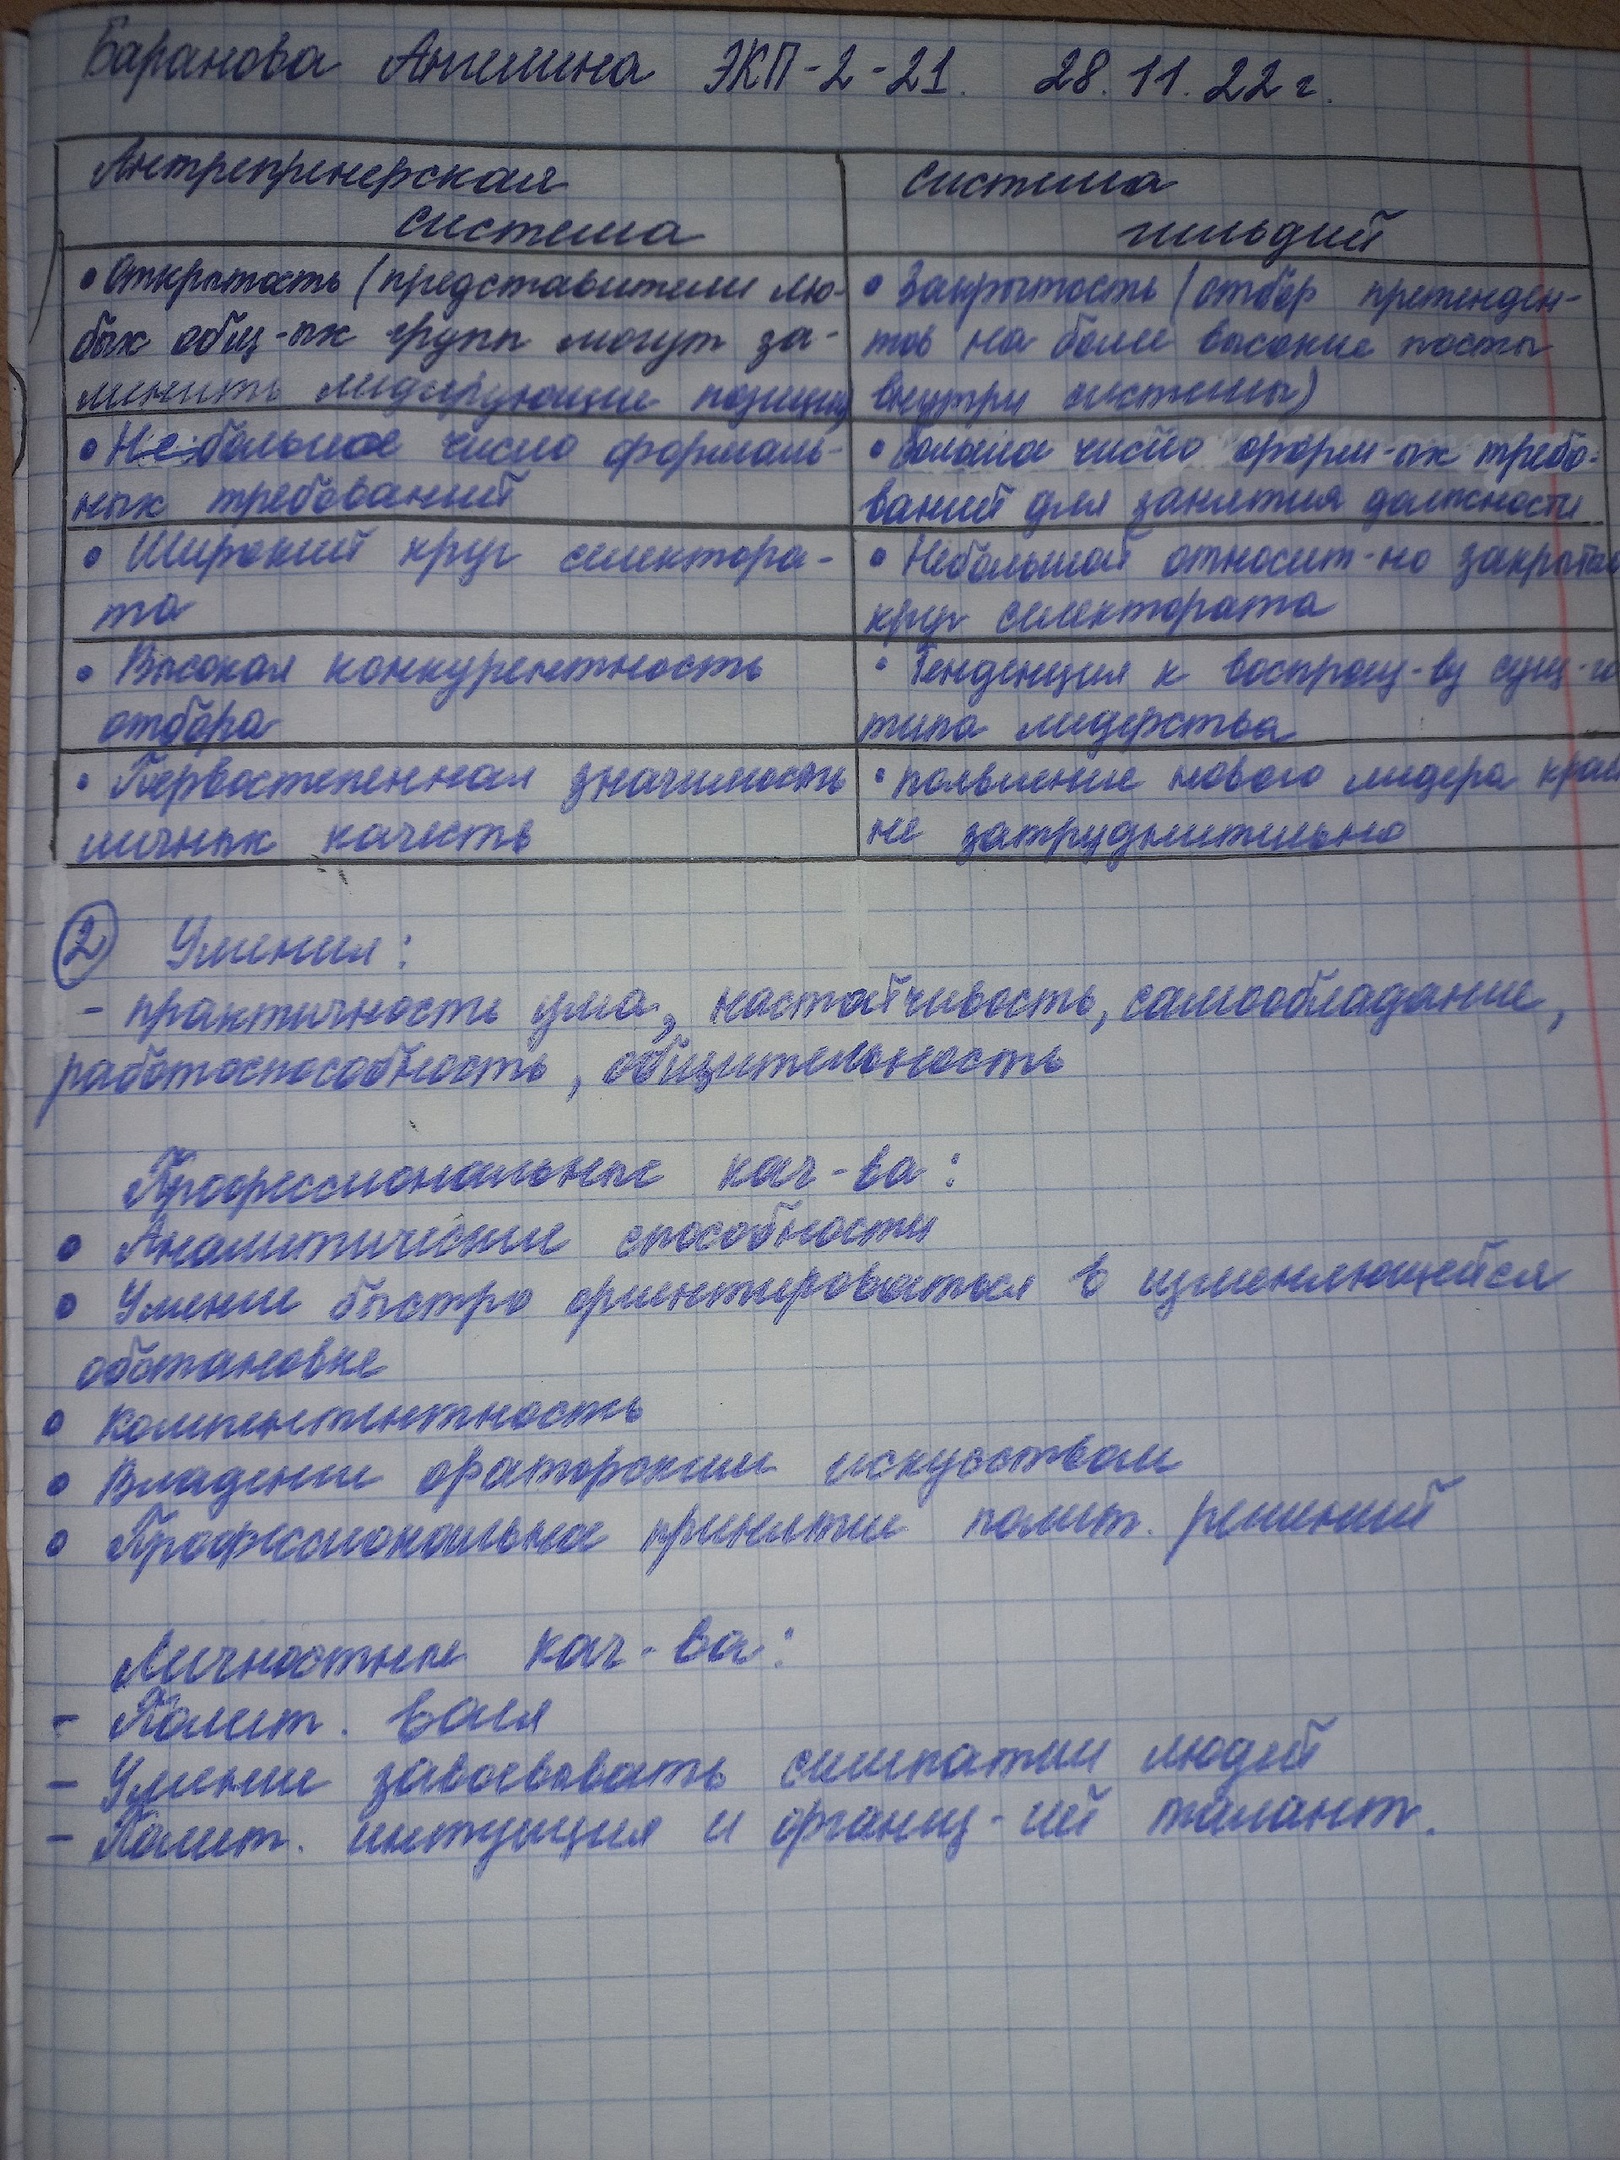 Баранова Ангелина ЭКП-2-21. 28.11.22 г.
Антрепренерская
система
система
гильдий
• Открытость (представители лю-
бых общ-ых групп могут за-
менить лидирующие позиции)
• Закрытость (отбор претенден-
тов на более высокие посты
внутри системы)
• Небольшое число формаль-
ных требований
• Большое число форм-ых требо-
ваний для занятия должности
• Широкий круг селектора-
та
• Небольшой относит-но закрытый
круг селектората
• Высокая конкурентность
отбора
• Тенденция к воспроиз-ву сущ-
типа лидерства
• Первостепенная значимость
личных качеств
• появление нового лидера край
не затруднительно
2 Умения:
- практичность ума, настойчивость, самообладание,
работоспособность, общительность
Профессиональные кач-ва:
• Аналитические способности
• Умение быстро ориентироваться в изменяющейся
обстановке
• Компетентность
• Владение ораторским искусством
• Профессиональное принятие полит. решений
Личностные кач-ва:
- Полит. воля
- Умение завоевывать симпатии людей
- Полит. интуиция и организ-ий талант.